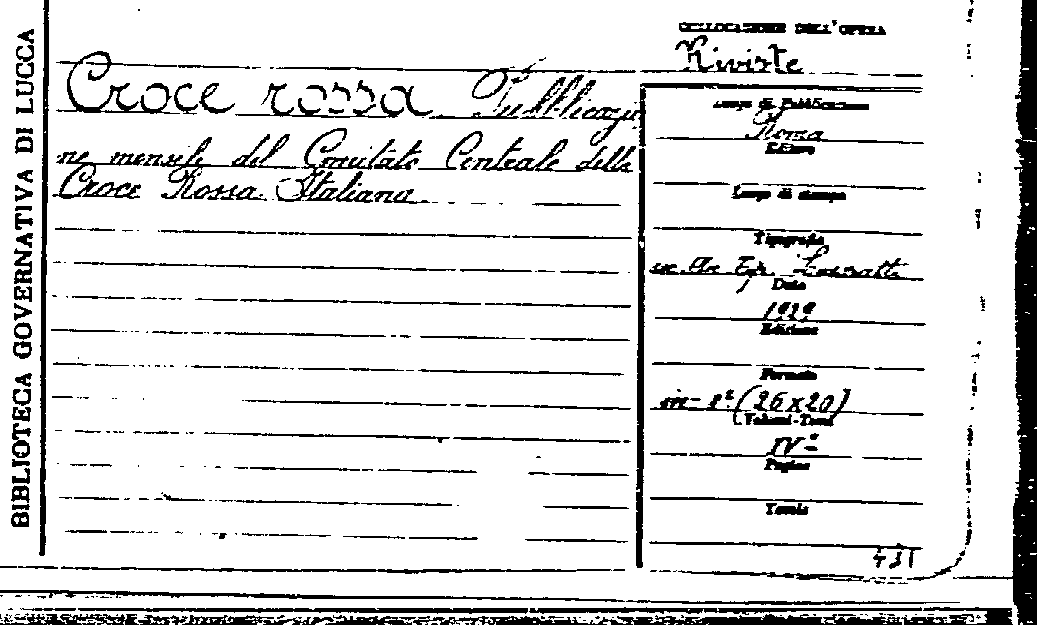 BIBLIOTECA GOVERNATIVA DI LUCCA
COLLOCAZIONE DELL'OPERA
Riviste
Croce rossa. Pubblicazio
ne mensile del Comitato Centrale della
Croce Rossa Italiana.
Luogo di Pubblicazione
Roma
Editore
Luogo di stampa
Tipografia
Tip.
Data
1929
Edizione
Formato
in-8º (26x20)
Volumi-Tomi
IVº
Pagine
Tavole
431